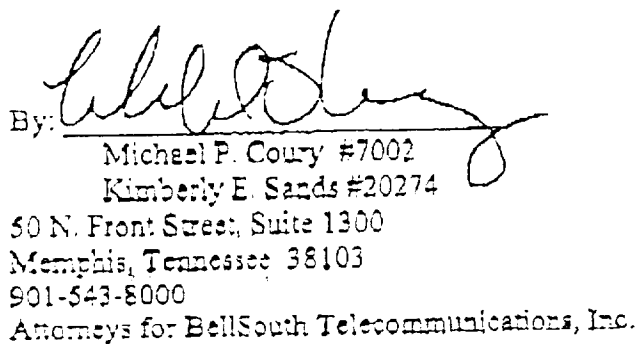 By:
Michael P. Coury #7002
Kimberly E. Sands #20274
50 N. Front Street, Suite 1300
Memphis, Tennessee 38103
901-543-8000
Attorneys for BellSouth Telecommunications, Inc.